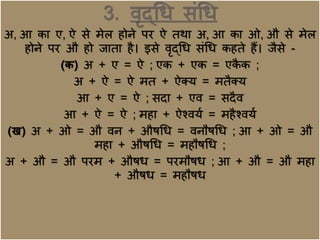 3. वृद्धि संधि
अ, आ का ए, ऐ से मेल होने पर ऐ तथा अ, आ का ओ, औ से मेल
होने पर औ हो जाता है। इसे वृद्धि संधि कहते हैं। जैसे -
(क) अ + ए = ऐ ; एक + एक = एकैक ;
अ + ऐ = ऐ मत + ऐक्य = मतैक्य
आ + ए = ऐ ; सदा + एव = सदैव
आ + ऐ = ऐ ; महा + ऐश्वर्य = महैश्वर्य
(ख) अ + ओ = औ वन + औषधि = वनौषधि ; आ + ओ = औ
महा + औषधि = महौषधि ;
अ + औ = औ परम + औषध = परमौषध ; आ + औ = औ महा
+ औषध = महौषध